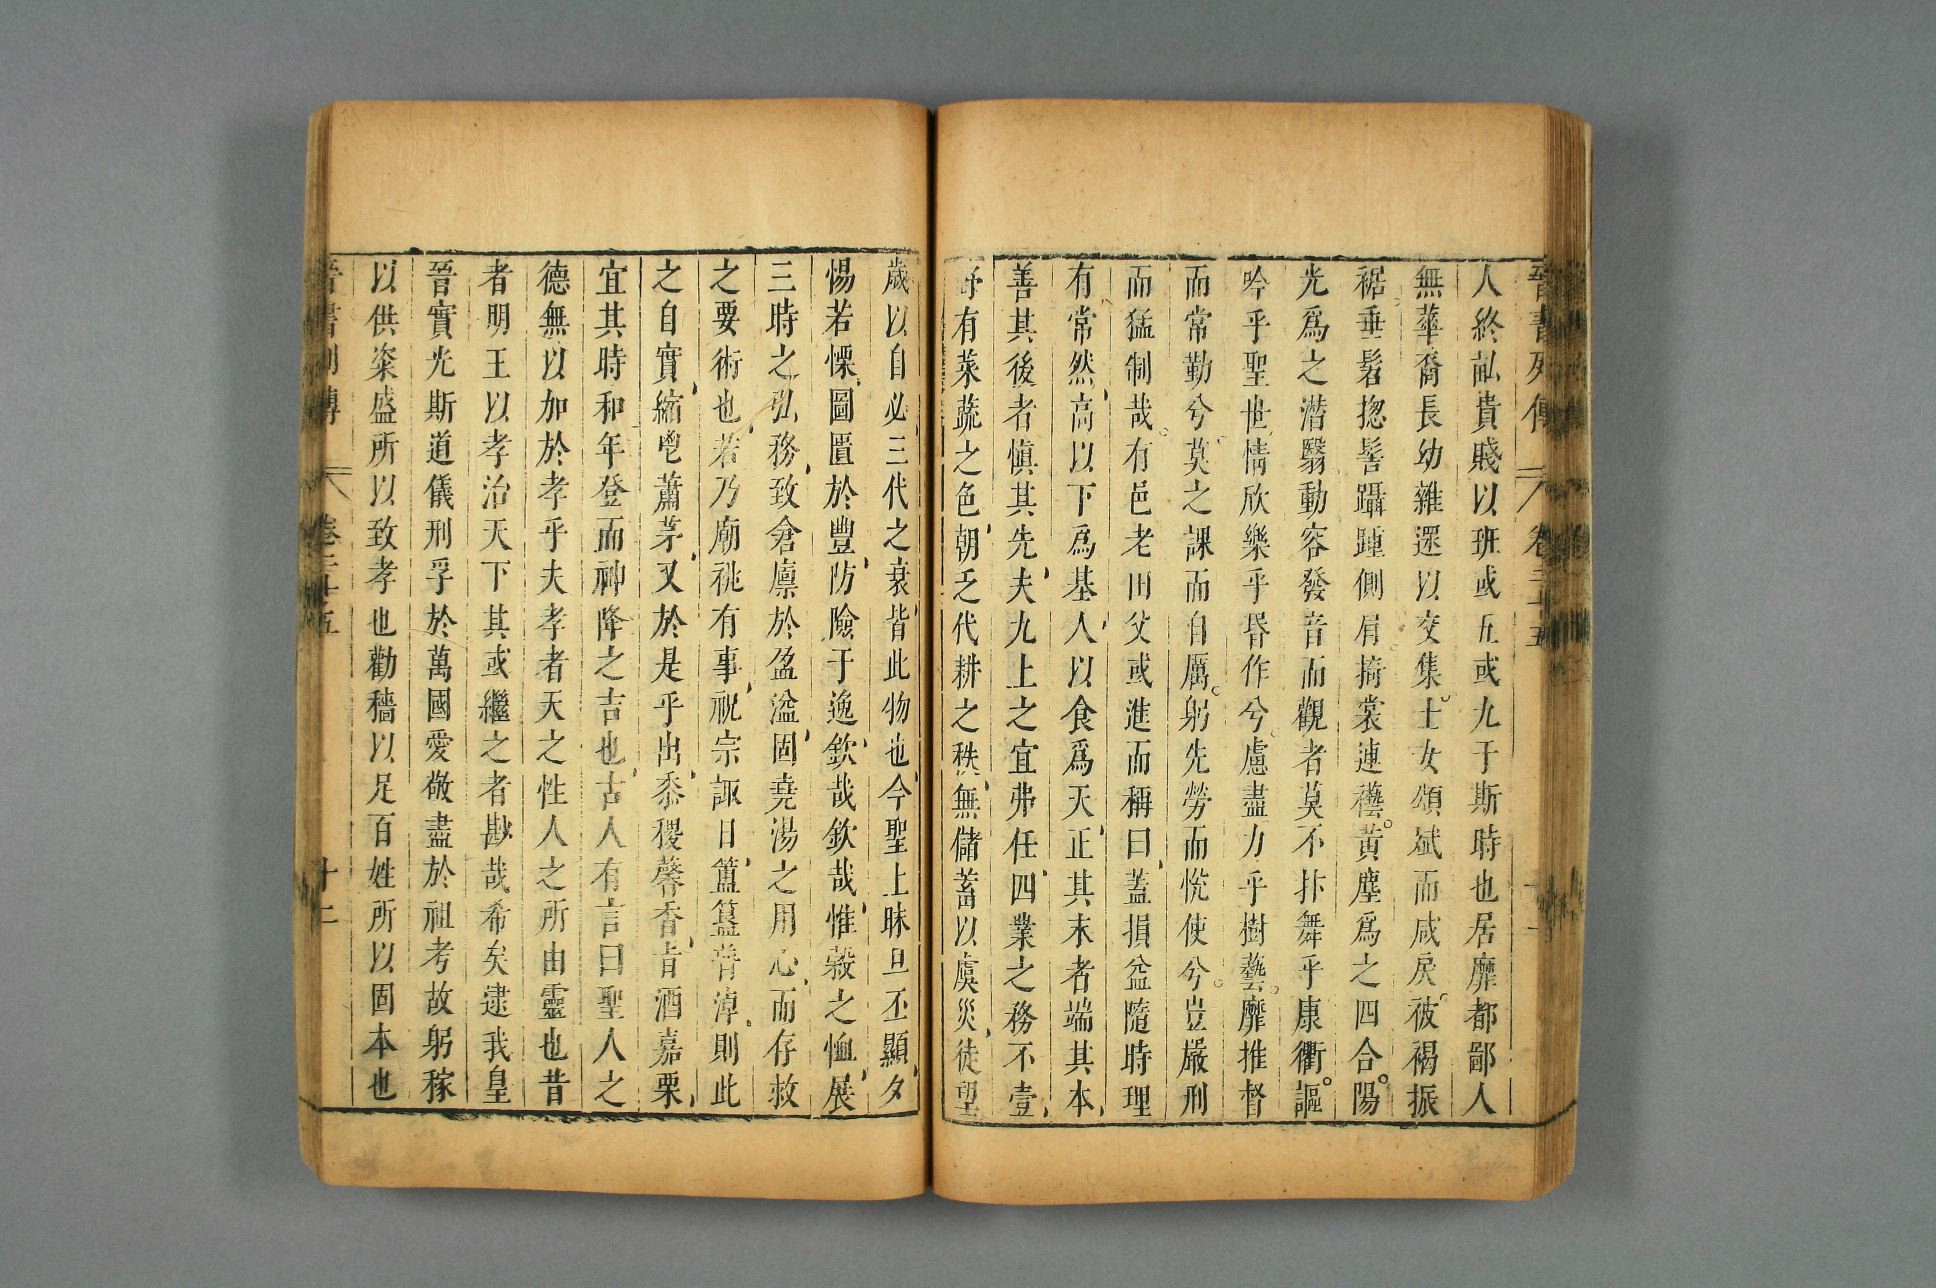 晉書列傳 卷二十五
人終畝貴賤以班或五或九于斯時也居靡都鄙人
無華裔長幼雜遝以交集士女頒斌而咸戾被褐振
裾垂髫揔髻躡踵側肩掎裳連襼黃塵爲之四合陽
光爲之潛翳動容發音而觀者莫不抃舞乎康衢謳
吟乎聖世情欣樂乎昬作兮慮盡力乎樹藝靡推督
而常勤兮莫之課而自厲躬先勞而悅使兮豈嚴刑
而猛制哉有邑老田父或進而稱曰蓋損益隨時理
有常然高以下爲基人以食爲天正其末者端其本
善其後者愼其先夫九土之宜弗任四業之務不壹
野有菜蔬之色朝乏代耕之秩無儲蓄以虞災徒望
歲以自必三代之衰皆此物也今聖上昧旦丕顯夕
惕若慄圖匱於豐防險于逸欽哉欽哉惟穀之恤展
三時之弘務致倉廩於盈溢固堯湯之用心而存救
之要術也若乃廟祧有事祝宗諏日簠簋普淖則此
之自實縮鬯蕭茅又於是乎出黍稷馨香旨酒嘉栗
宜其時和年登而神降之吉也古人有言曰聖人之
德無以加於孝乎夫孝者天之性人之所由靈也昔
者明王以孝治天下其或繼之者尠哉希矣逮我皇
晉實光斯道儀刑孚於萬國愛敬盡於祖考故躬稼
以供粢盛所以致孝也勸穡以足百姓所以固本也
晉書列傳 卷二十五 十二